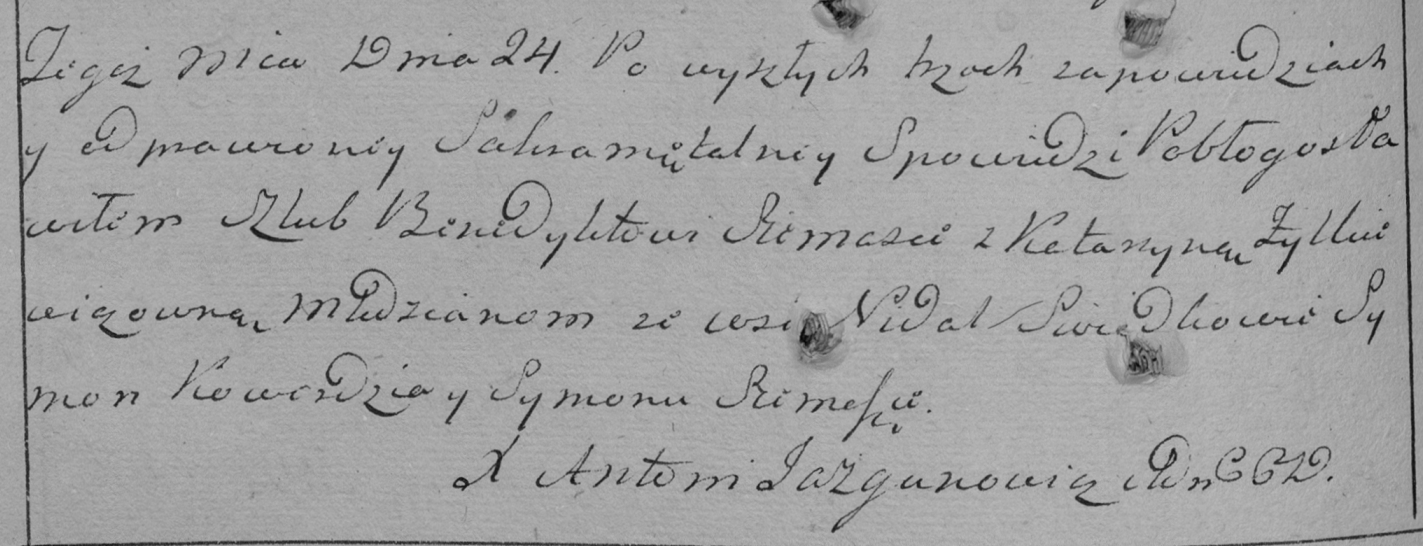 Tegoż Mca Dnia 24. Po wyszłych trzech zapowiedziach
y odprawioney Sakramętalney Spowiedzi Pobłogosła
wiłem Szlub Benedyktowi Siemasce z Katarzyną Żyllie
wiczowną Młodzianom ze wsi Nidal Swiedkowie Sy
mon Kowerdzia y Symonu
X Antoni Jazgunowicz